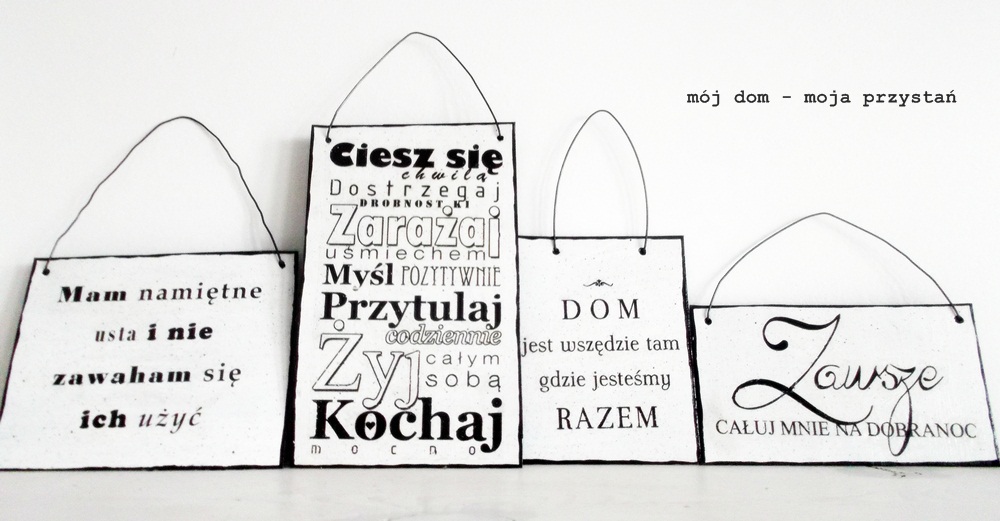 mój dom - moja przystań
Mam namiętne
usta i nie
zawaham się
ich użyć
Ciesz się
chwilą
Dostrzegaj
DROBNOSTKI
Zarażaj
uśmiechem
Myśl POZYTYWNIE
Przytulaj
codziennie
Żyj całym
sobą
Kochaj
mocno
DOM
jest wszędzie tam
gdzie jesteśmy
RAZEM
Zawsze
CAŁUJ MNIE NA DOBRANOC